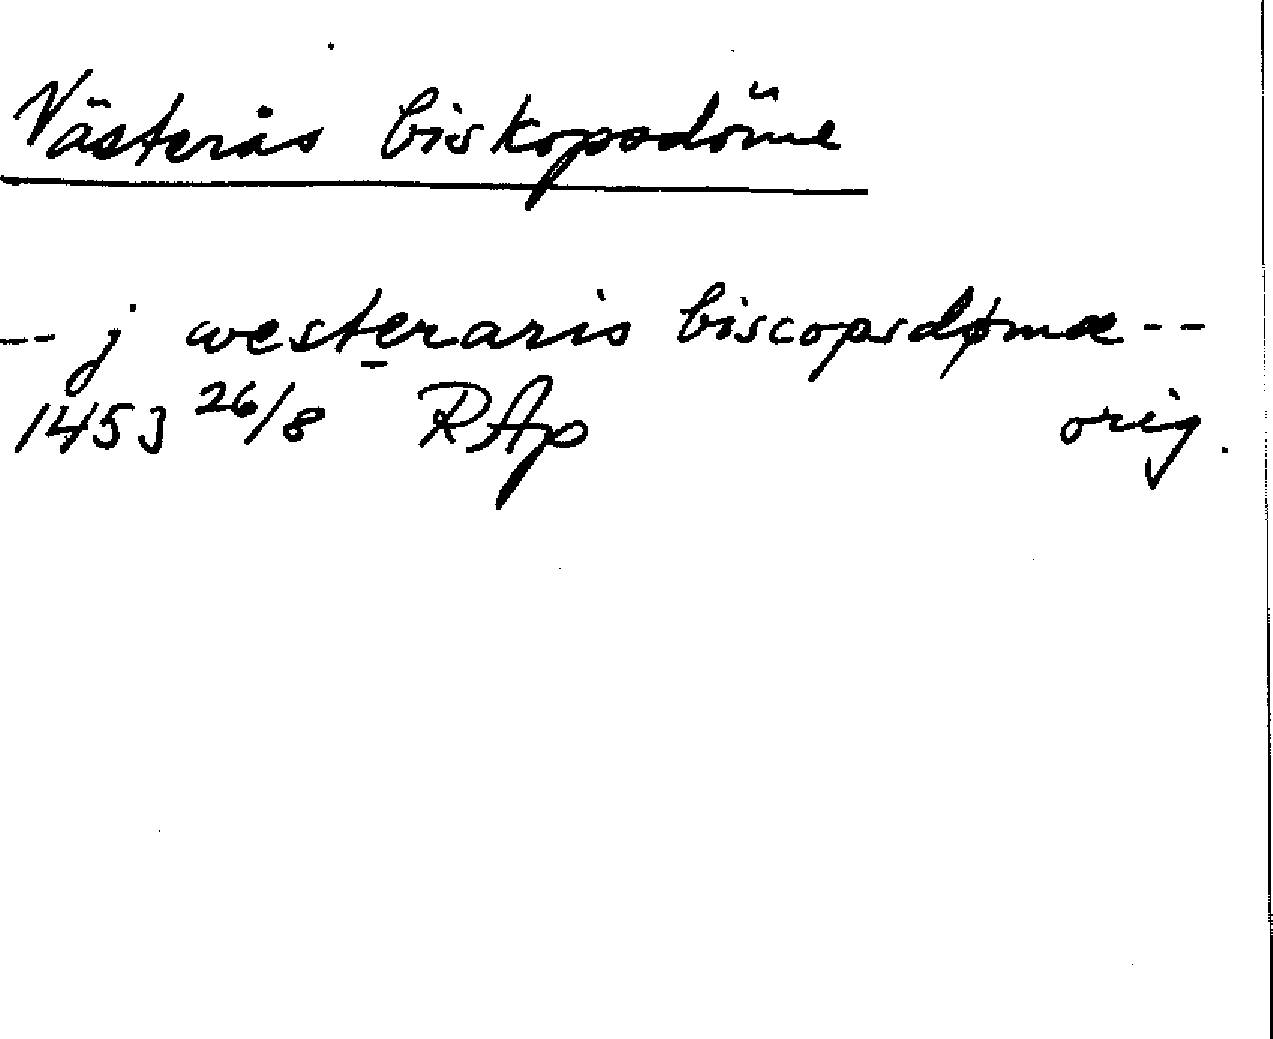 Västerås biskopsdöme
-- j westeraris biscopsdømæ --
1453 26/8 RAp orig.